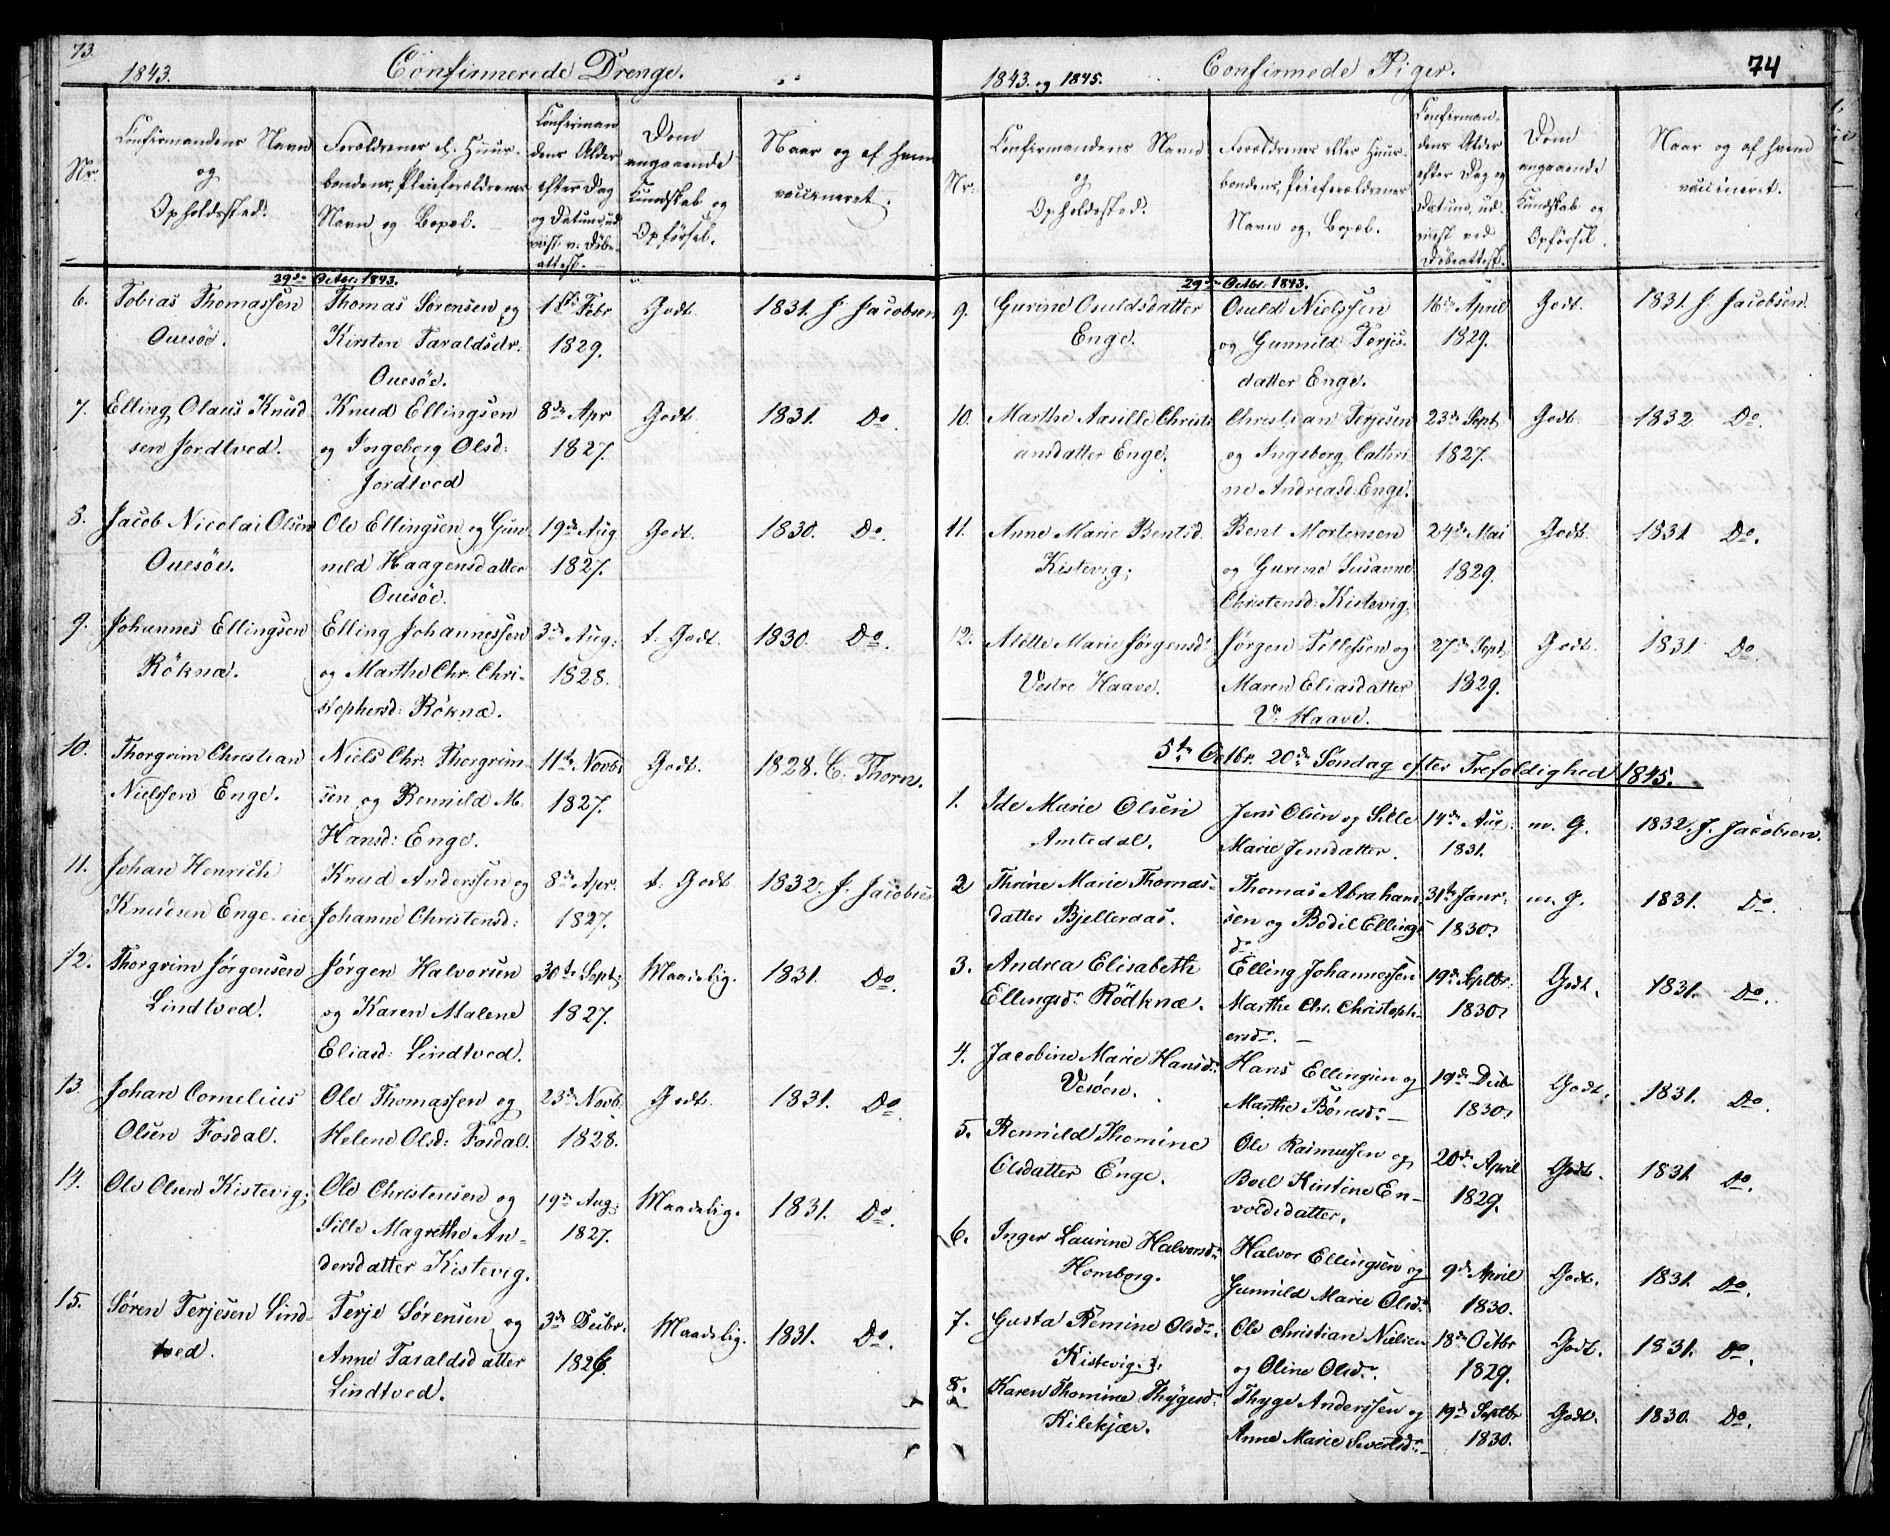 73.
1843.
Confirmerede Drenge.
Nr.
Confirmandens Navn
og
Opholdssted.
Forældrenes el. Huus-
bondens, Pleieforældrenes
Navn og Bopæl.
Confirman
dens Alder
efter Dag
og Datum ud
viist v. Døbe-
attest.
Dom
angaaende
Kundskab og
Opførsel.
Naar og af hvem
vaccineret.
29de Octbr. 1843.
6. Tobias Thomassen Thomas Sørensen og 18de Febr Godt. 1831. J. Jacobsen
Ouesöe. Kirsten Taraldsdr. 1829.
Ouesöe.
7. Elling Olaus Knud- Knud Ellingsen 8de Apr Godt. 1831. Do.
sen Jordtved. og Ingeborg Olsd: 1827.
Jordtved
8. Jacob Nicolai Olsen Ole Ellingsen og Gun 19de Aug Godt. 1830. Do.
Ouesöe. nild Haagensdatter 1827.
Ouesöe.
9. Johannes Ellingsen Elling Johannessen 3de Aug: t. Godt. 1830. Do.
Röknæ. og Marthe Chr. Chri- 1828.
stophersd: Röknæ.
10. Thorgrim Christian Niels Chr. Thorgrim- 11te Novb: Godt. 1828. C. Thorn.
Nielssen Enge. sen og Rennild M. 1827.
Hansd: Enge.
11. Johan Henrich Knud Anderssen og 8de Apr. t. Godt 1832. J. Jacobsen
Knudsen Enge-eie: Johanne Christensd: 1827.
12. Thorgrim Jørgensen Jørgen Halvorsen 30te Sept: Maadelig. 1831. Do.
Lindtved. og Karen Malene 1827.
Eliasd: Lindtved.
13. Johan Cornelius Ole Thomassen og 23de Novb. Godt. 1831. Do.
Olsen Fosdal. Helene Olsd: Fosdal. 1828.
14. Ole Olsen Kistevig; Ole Christensen og 19de Aug; Maadelig. 1831. Do.
Sille Magrethe An- 1827.
dersdatter Kistevig.
15. Søren Terjesen Lind- Terje Sörensen og 3de Decbr. Maadelig. 1831. Do.
tved. Anne Taraldsdatter 1826.
Lindtved.
1843. og 1845.
Confirmede Piger.
74
Nr.
Confirmandens Navn
og
Opholdssted.
Forældrenes eller Huus-
bondens, Pleieforældrenes
Navn og Bopæl.
Confirman-
dens Alder
efter Dag og
Datum, ud-
viist ved
Døbeattest.
Dom
angaaende
Kundskab og
Opførsel.
Naar og af hvem
vaccineret.
29de Octbr. 1843.
9. Gurine Osuldsdatter Osuld Nielssen 16de April Godt. 1831. J. Jacobsen.
Enge. og Gunnild Terjes- 1829.
datter Enge.
10. Marthe Aasille Christi Christian Terjesen 23de Sept Godt. 1832 Do.
ansdatter Enge. og Ingeborg Cathri- 1827.
ne Andreasd: Enge.
11. Anne Marie Bentsd. Bent Mortensen 24de Mai Godt. 1831 Do.
Kistevig; og Gurine Susanne 1829.
Christensd: Kistevig;
12. Alette Marie Jørgensdr Jørgen Tellefsen og 27de Sept; Godt. 1831 Do.
Vestre Haave. Maren Eliasdatter 1829.
V. Haave.
5te Octbr. 20de Søndag efter Trefoldighed 1845.
1. Ide Marie Olsen Jens Olsen og Sille 14de Aug: m. G. 1832. J. Jacobsen.
Amtedal. Marie Jensdatter. 1831.
2 Thrine Marie Thomas- Thomas Abraham 31te Janr. m. g. 1831. Do.
datter Bjellerdas. sen og Bodil Ellings 1830.
dr
3. Andrea Elisabeth Elling Johannessen 19de Septbr: Godt. 1831. Do.
Ellingsdr Rödknæ. Marthe Chr. Christoph- 1830.
ersdr.
4. Jacobine Marie Hansdr Hans Ellingsen og 19de Decbr Godt. 1831. Do.
Vesöen. Marthe Bönesdr 1830.
5. Rennild Thomine Ole Rasmussen og 20de April Godt. 1831. Do.
Olsdatter Enge. Boel Kirstine En- 1829.
voldsdatter.
6. Inger Laurine Halvorsdr Halvor Ellingsen og 9de April Godt. 1831. Do.
Homborg. Gunnild Marie Olsdr 1830.
7. Gusta Remine Olsdr. Ole Christian Nielsen 18de Octbr Godt. 1831. Do.
Kistevig. og Oline Olsdr. 1829.
8. Karen Thomine Thygesdr Thyge Anderssen og 19de Septbr Godt. 1830. Do.
Kilekjær. Anne Marie Sivertsdr 1830.